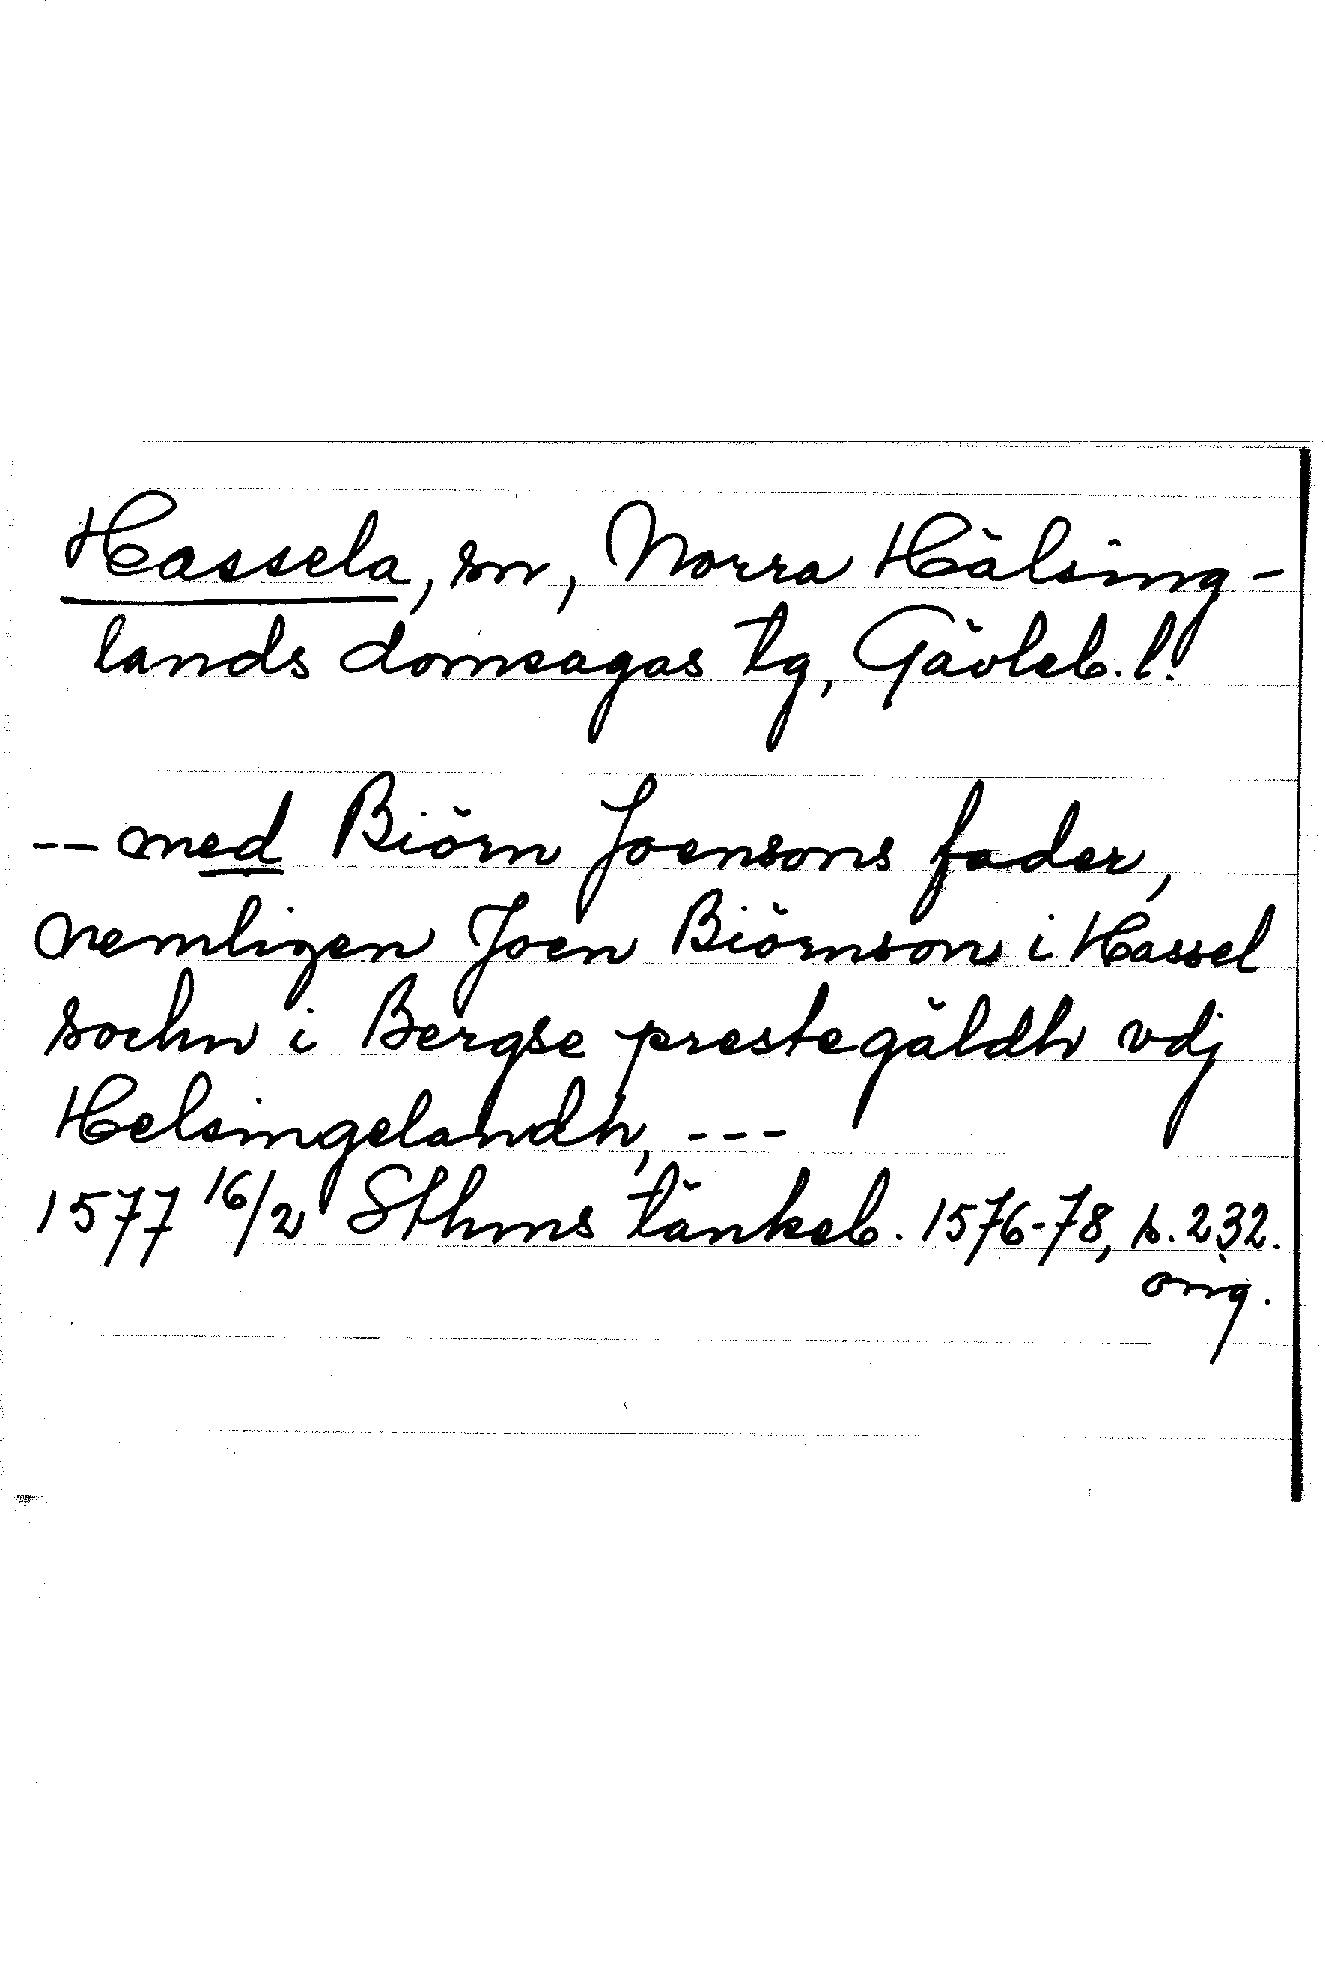 Hassela, sn, Norra Hälsing-
lands domsagas tg, Gävleb. l.
-- med Biörn Joensons fader,
nemligen Joen Biörnson i Hassel
sochn i Bergse prestegäldh vdj
Helsingelandh, ---
1577 16/2 Sthms tänkeb. 1576-78, s. 232.
orig.